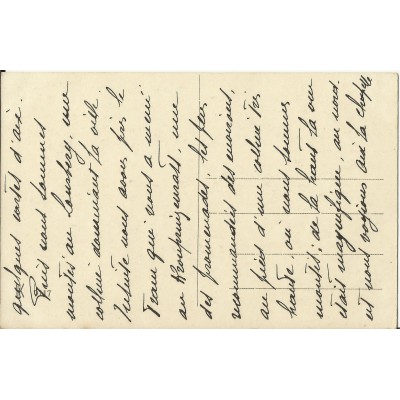 quelques cartes d'aix.
Puis nous sommes
montés au Lousberg, une
colline dominant la ville.
Ensuite nous avons pris le
Tram qui nous a mené
au une
des promenades les plus
recommandées des environs,
au pied d'une colline très
haute où nous sommes
montés; de là haut la vue
était magnifique, au nord
et nous voyions aix la chapelle